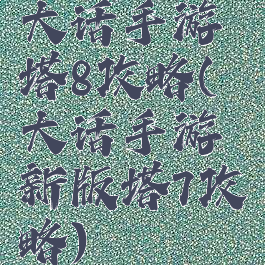 大话手游
塔8攻略(
大话手游
新版塔7攻
略)